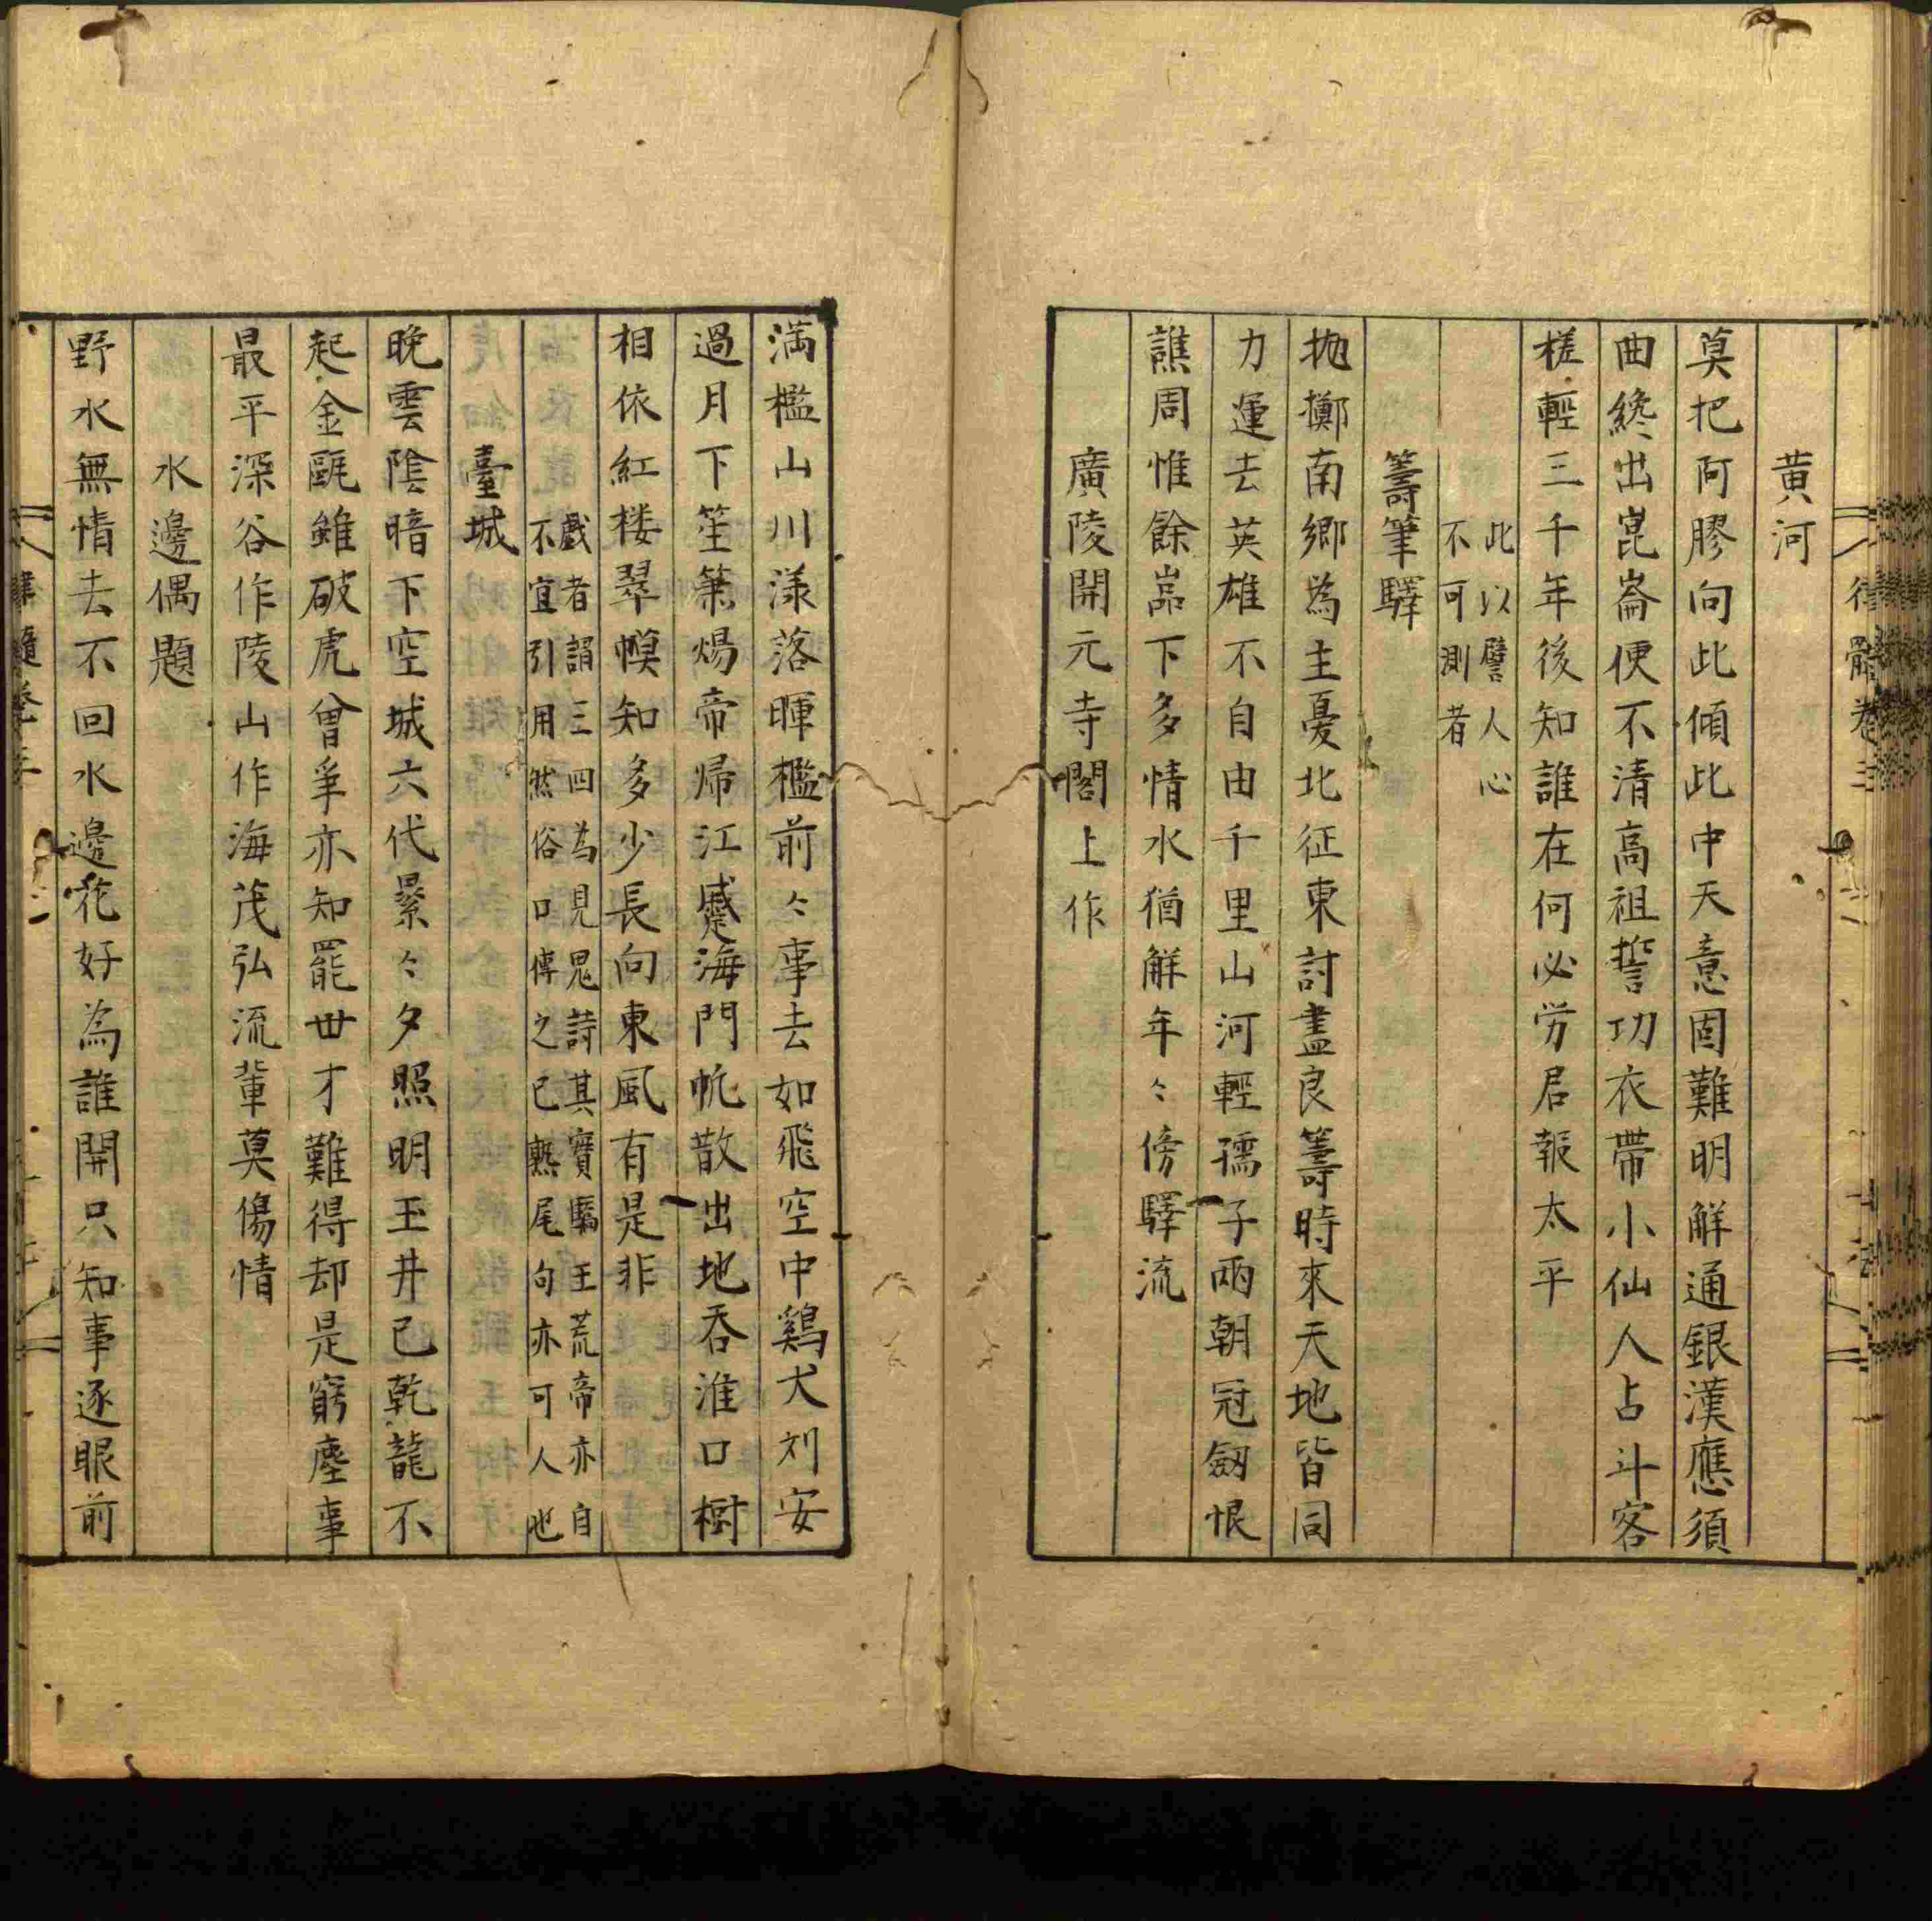 黄河
莫把阿膠向此傾此中天意固難明解通銀漢應須
曲纔出崑崙便不清高祖誓功衣帶小仙人占斗客
槎輕三千年後知誰在何必労君報太平
此以譬人心
不可測者
籌筆驛
抛擲南鄉為主憂北征東討盡良籌時來天地皆同
力運去英雄不自由千里山河輕孺子兩朝冠劔恨
譙周惟餘嵓下多情水猶解年〻傍驛流
廣陵開元寺閣上作
満檻山川漾落暉檻前〻事去如飛空中鷄犬刘安
過月下笙簫煬帝歸江蹙海門帆散出地吞淮口樹
相依紅楼翠幙知多少長向東風有是非
戲者謂三四為見鬼詩其實驕王荒帝亦自
不宜引用然俗口傳之已熟尾句亦可人也
臺城
晚雲陰暗下空城六代纍〻夕照明玉井已乾龍不
起金甌雖破虎曾爭亦知罷世才難得却是窮塵事
最平深谷作陵山作海茂弘流輩莫傷情
水邊偶題
野水無情去不回水邊花好為誰開只知事逐眼前